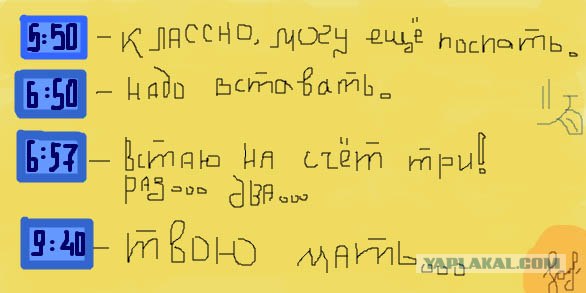 5:50 – классно, могу ещё поспать.
6:50 – надо вставать.
6:57 – встаю на счёт три!
раз... два...
9:40 – твою мать...
YAPLAKAL.COM